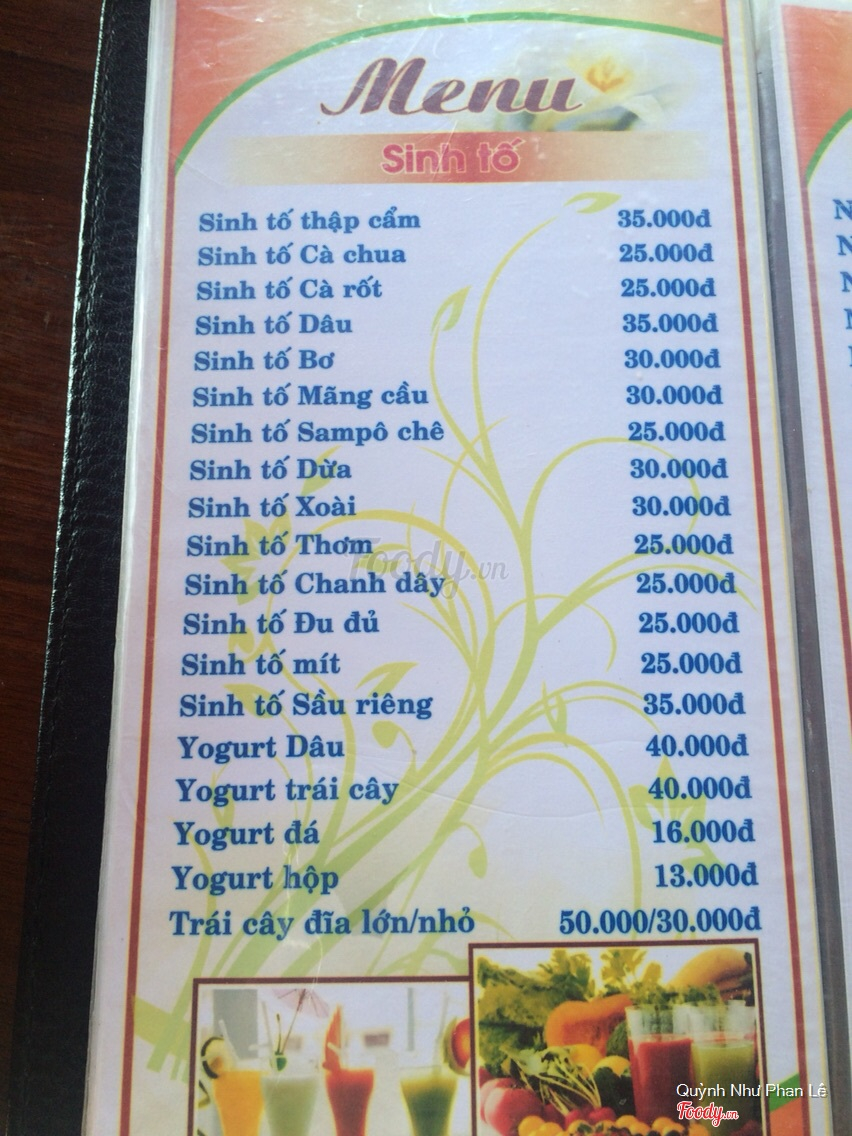 Menu
Sinh tố
Sinh tố thập cẩm 35.000đ
Sinh tố Cà chua 25.000đ
Sinh tố Cà rốt 25.000đ
Sinh tố Dâu 35.000đ
Sinh tố Bơ 30.000đ
Sinh tố Mãng cầu 30.000đ
Sinh tố Sampô chê 25.000đ
Sinh tố Dừa 30.000đ
Sinh tố Xoài 30.000đ
Sinh tố Thơm 25.000đ
Sinh tố Chanh dây 25.000đ
Sinh tố Đu đủ 25.000đ
Sinh tố mít 25.000đ
Sinh tố Sầu riêng 35.000đ
Yogurt Dâu 40.000đ
Yogurt trái cây 40.000đ
Yogurt đá 16.000đ
Yogurt hộp 13.000đ
Trái cây đĩa lớn/nhỏ 50.000/30.000đ
Foody.vn
Quỳnh Như Phan Lê
Foody.vn